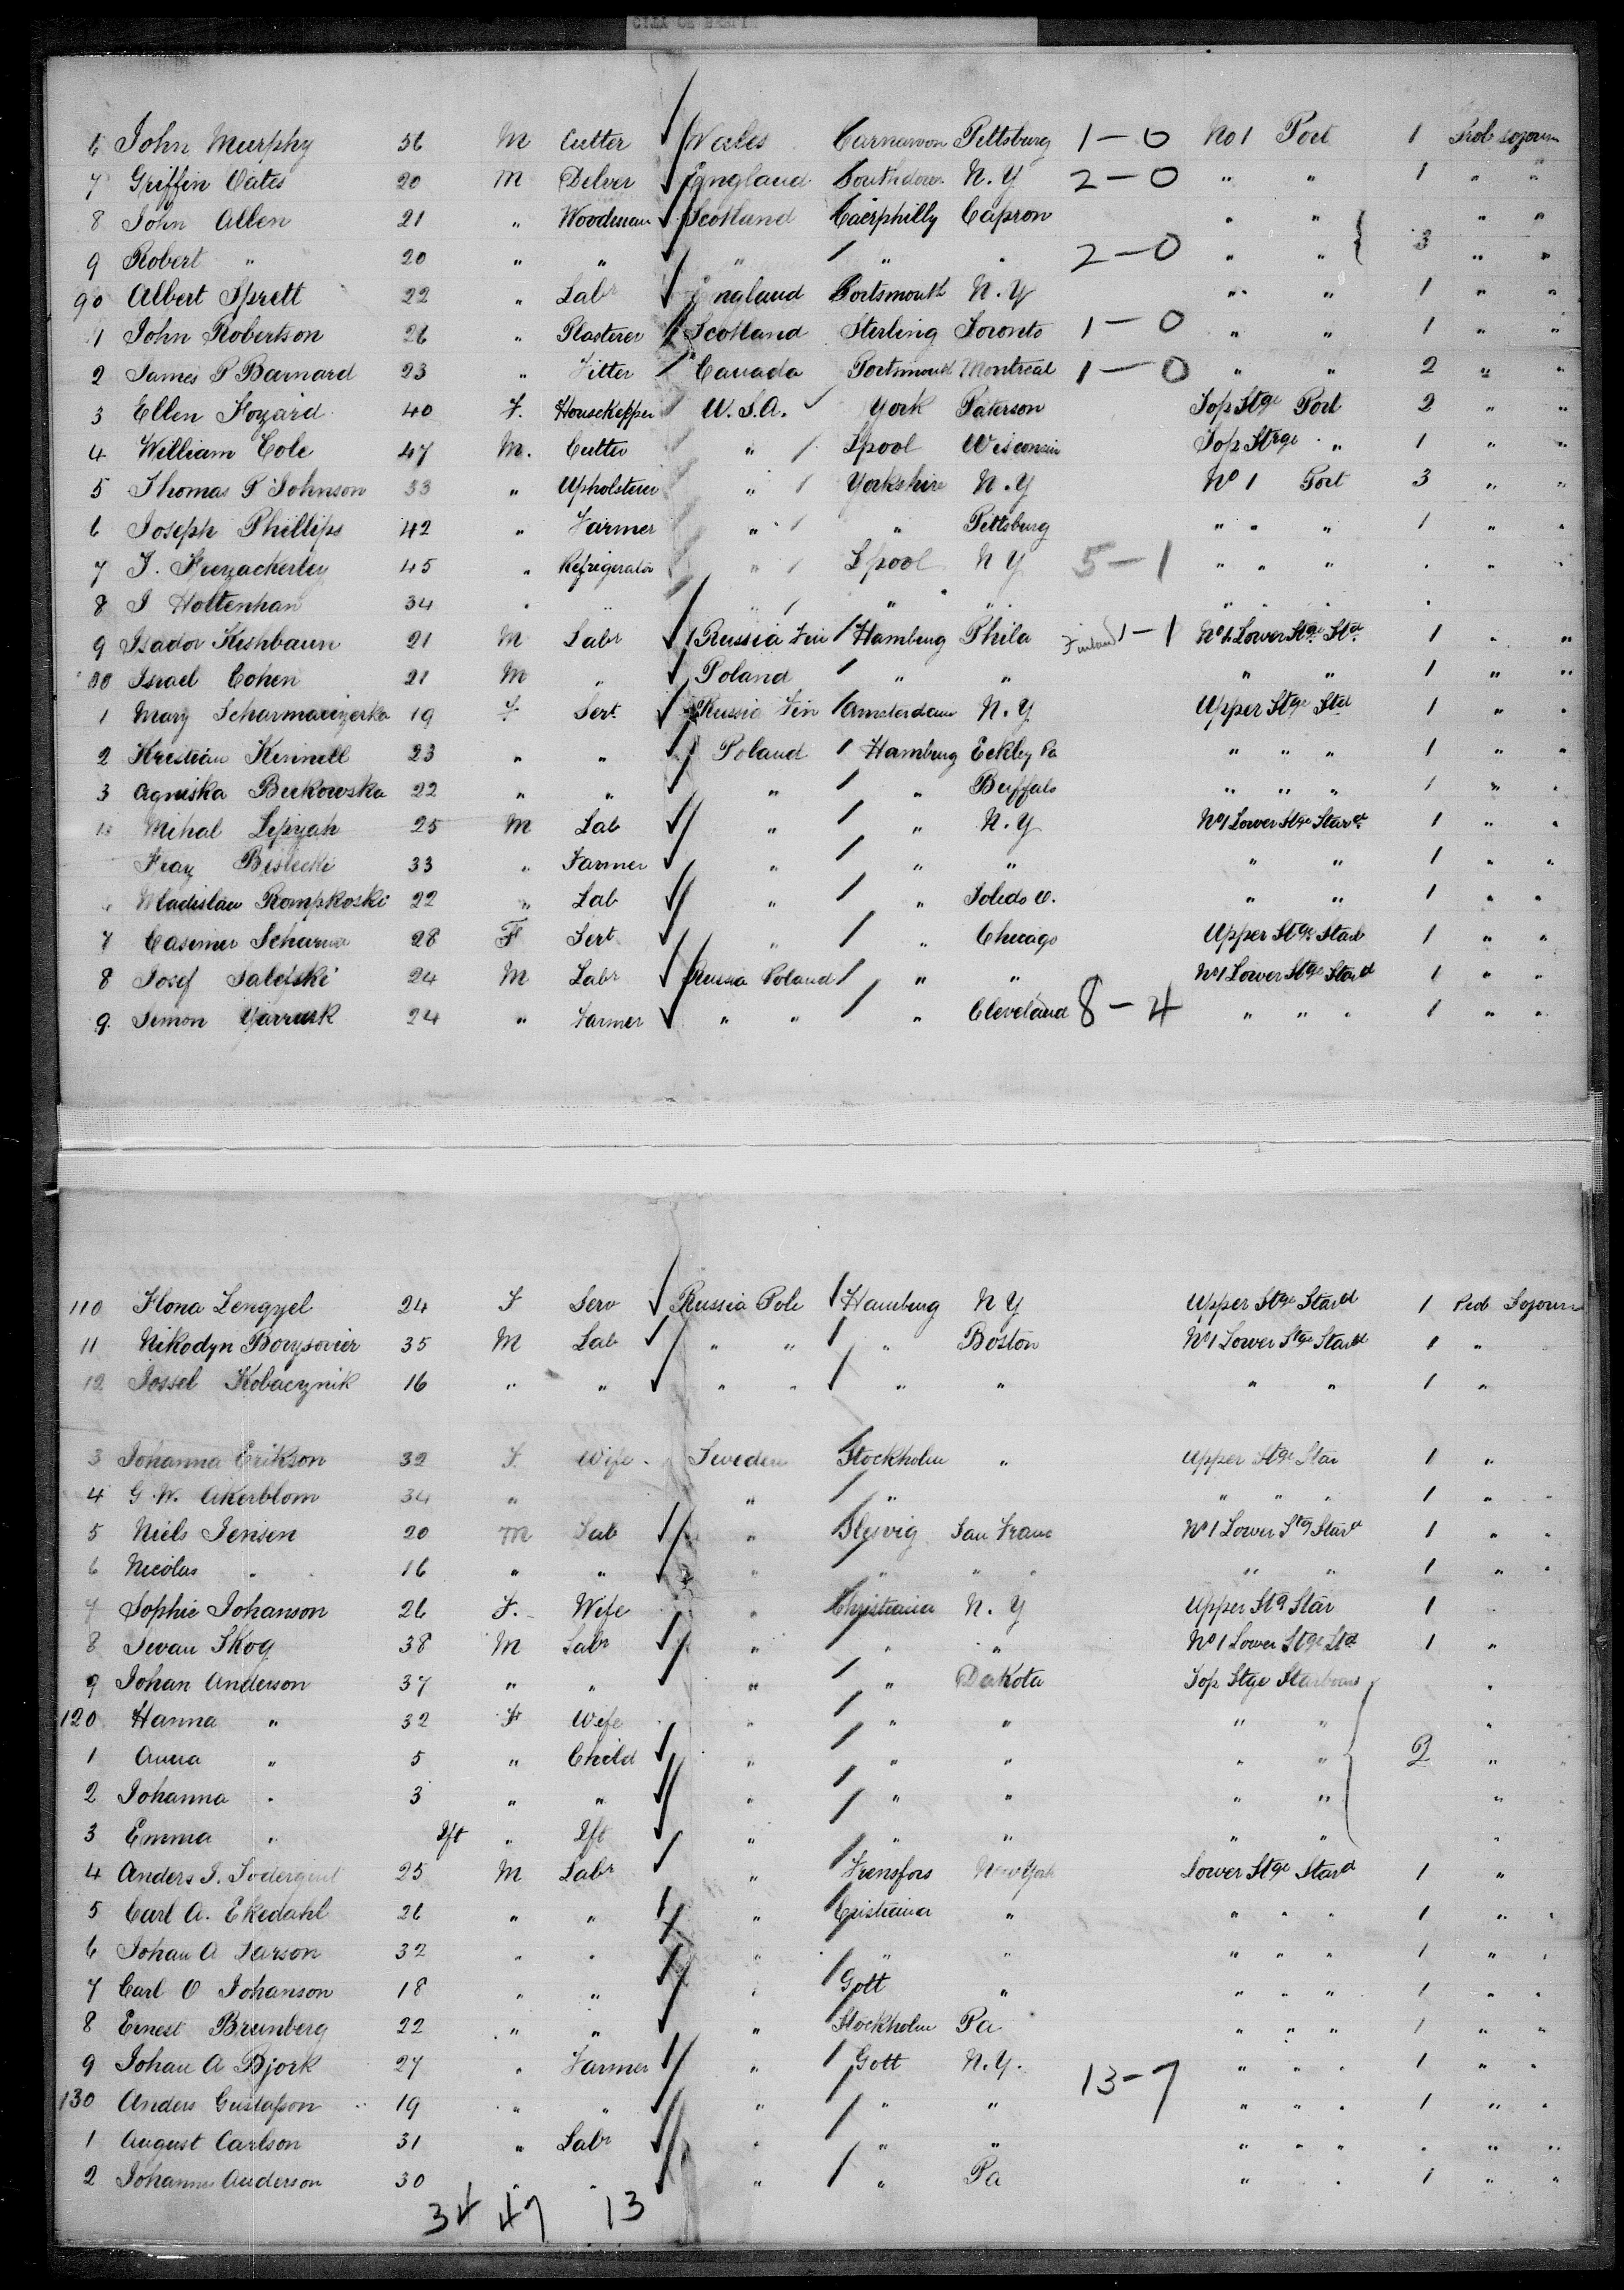 CITY OF BERLIN
6 John Murphy 56 M Cutter Wales Carnarvon Pittsburg 1-0 No 1 Port 1 Prob sojourn
7 Griffin Oates 20 M Delver England Southdown N.Y 2-0 " " 1 " "
8 John Allen 21 " Woodman Scotland Caerphilly Capron " " " "
9 Robert " 20 " " " " " 2-0 " " 3 " "
90 Albert Sprett 22 " Labr England Portsmouth N.Y " " 1 " "
1 John Robertson 26 " Plasterer Scotland Sterling Toronto 1-0 " " 1 " "
2 James P Barnard 23 " Fitter Canada Portsmouth Montreal 1-0 " " 2 " "
3 Ellen Fozard 40 F. Housekepper U.S.A. York Paterson Top Stge Port 2 " "
4 William Cole 47 M. Cutter " Lpool Wisconsin Top Strge " 1 " "
5 Thomas P Johnson 33 " Upholsterer " Yorkshire N.Y No 1 Port 3 " "
6 Joseph Phillips 42 " Farmer " " Pittsburg " " " 1 " "
7 45 " Refrigerator " Lpool N Y 5-1 " " " " " "
8 J Hottenhan 34 " " " " " " " " "
9 Isador Kishbaun 21 M Labr Russia Fin Hamburg Phila Finland 1-1 No 1 Lower Stge Std 1 " "
00 Israel Cohen 21 M " Poland " " " " 1 " "
1 Mary 19 F Sert Russia Fin Amsterdam N.Y Upper Stge Std 1 " "
2 Kristian Kinnell 23 " " Poland Hamburg Eckley Pa " " " 1 " "
3 Agniska Berkowska 22 " " " " Buffalo " " " 1 " "
Mihal 25 M Lab " " N.Y No 1 Lower Stge Stard 1 " "
Bislecki 33 " Farmer " " " " " 1 " "
Wladislaw Rompkoski 22 " Lab " " Toledo O. " " 1 " "
7 Casimer 28 F Sert " " Chicago Upper Stge Starb 1 " "
8 Josef Saletski 24 M Labr Russia Poland " " No 1 Lower Stge Stard 1 " "
9 Simon 24 " Farmer " " " Cleveland 8-4 " " " 1 " "
110 Ilona Lengyel 24 F Serv Russia Pole Hamburg N Y Upper Stge Stard 1 Prob Sojourn
11 Nikodyn Borysovier 35 M Lab " " " Boston No 1 Lower Stge Stard 1 "
12 Jossel Kobacznik 16 " " " " " " " " 1 "
3 Johanna Erikson 32 F. Wife Sweden Stockholm " Upper Stge Star 1 "
4 G.W. Akerblom 34 " " " " " " 1 "
5 Niels Jensen 20 M Lab " Slesvig San Franc No 1 Lower Stg Stard 1 " "
6 Nicolus " 16 " " " " " " " 1 " "
7 Sophie Johanson 26 F. Wife " Christiania N.Y Upper Stg Star 1 "
8 Swan Skog 38 M Labr " " " No 1 Lower Stge Std 1 "
9 Johan Anderson 37 " " " " Dakota Top Stge Starboard "
120 Hanna " 32 F Wife " " " " " "
1 Anna " 5 " Child " " " " " 2 "
2 Johanna " 3 " " " " " " " "
3 Emma " Ift " Ift " " " " " "
4 Anders J. 25 M Labr " New York Lower Stge Stard 1 "
5 Carl A. Ekedahl 26 " " " Cristiania " " " " 1 " "
6 Johan A Larson 32 " " " " " " " " 1 " "
7 Carl O Johanson 18 " " " Gott " " " " 1 " "
8 Ernest Brunberg 22 " " " Stockholm Pa " " " 1 " "
9 Johan A Bjork 27 " Farmer " Gott N.Y. 13-7 " " " 1 " "
130 Anders Gustafson 19 " " " " " " " " 1 " "
1 August Carlson 31 " Labr " " " " " " " "
2 Johannes Anderson 30 " " " " Pa " " 1 " "
34 47 13